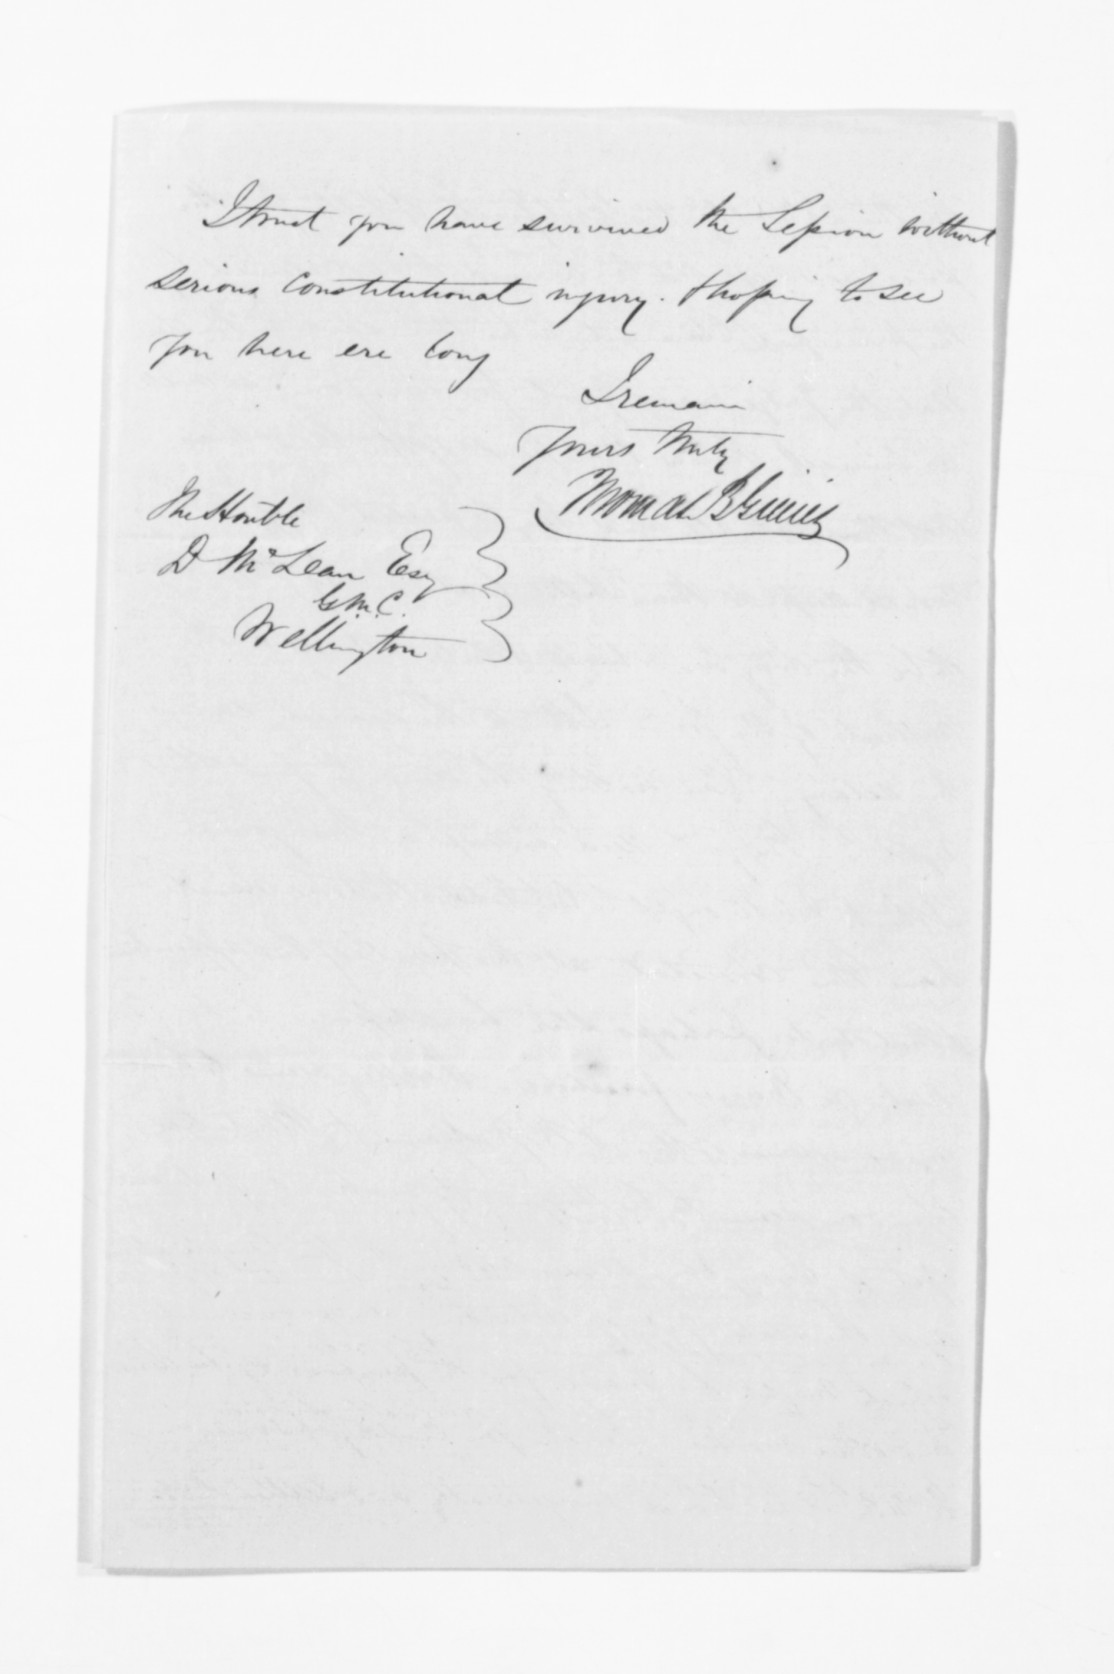 I trust you have survived the Session without
serious constitutional injury. & hoping to see
you here ere long
I remain
Yours truly
Thomas B Gillies
The Honble
D McLean Esq
G.M.C.
Wellington